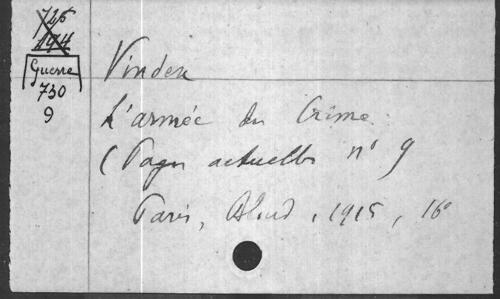 726
194
Guerre
730
9
Vindex
L'armée du Crime
(Pages actuelles n° 9
Paris, Bloud, 1915, 16°